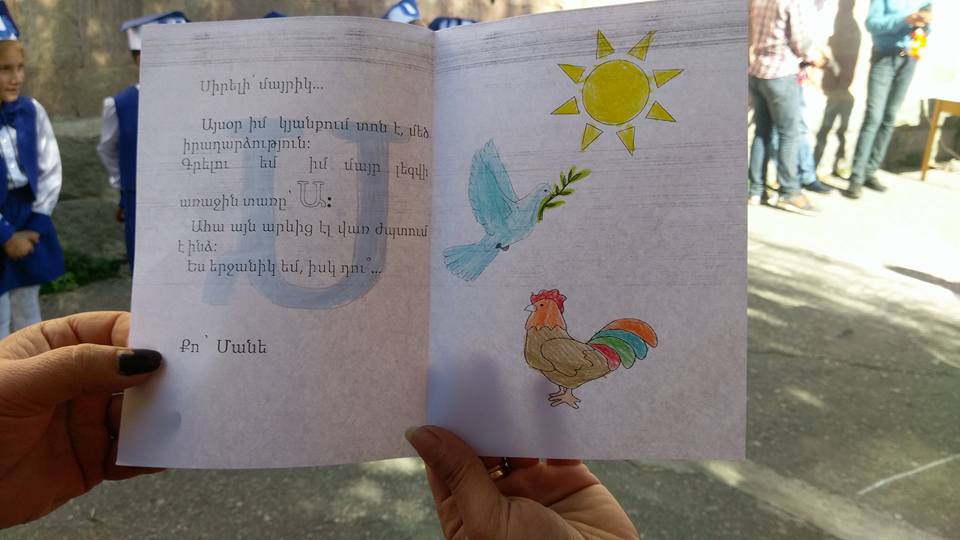 Սիրելի՛ մայրիկ...
Այսօր իմ կյանքում տոն է, մեծ
իրադարձություն:
Գրելու եմ իմ մայր լեզվի
առաջին տառը՝ Ա:
Ահա այն արևից էլ վառ ժպտում
է ինձ:
Ես երջանիկ եմ, իսկ դու՞...
Քո՝ Մանե